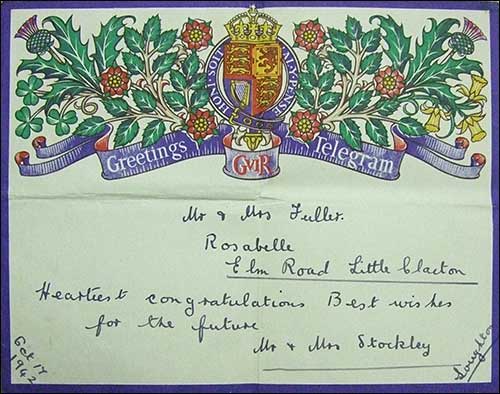 HONI SOIT QUI MAL Y PENSE
Greetings GVIR Telegram
Mr & Mrs Fuller.
Rosabelle
Elm Road Little Clacton
Heartiest congratulations Best wishes
for the future
Mr & Mrs Stockley
Oct 17
1942
Loughton